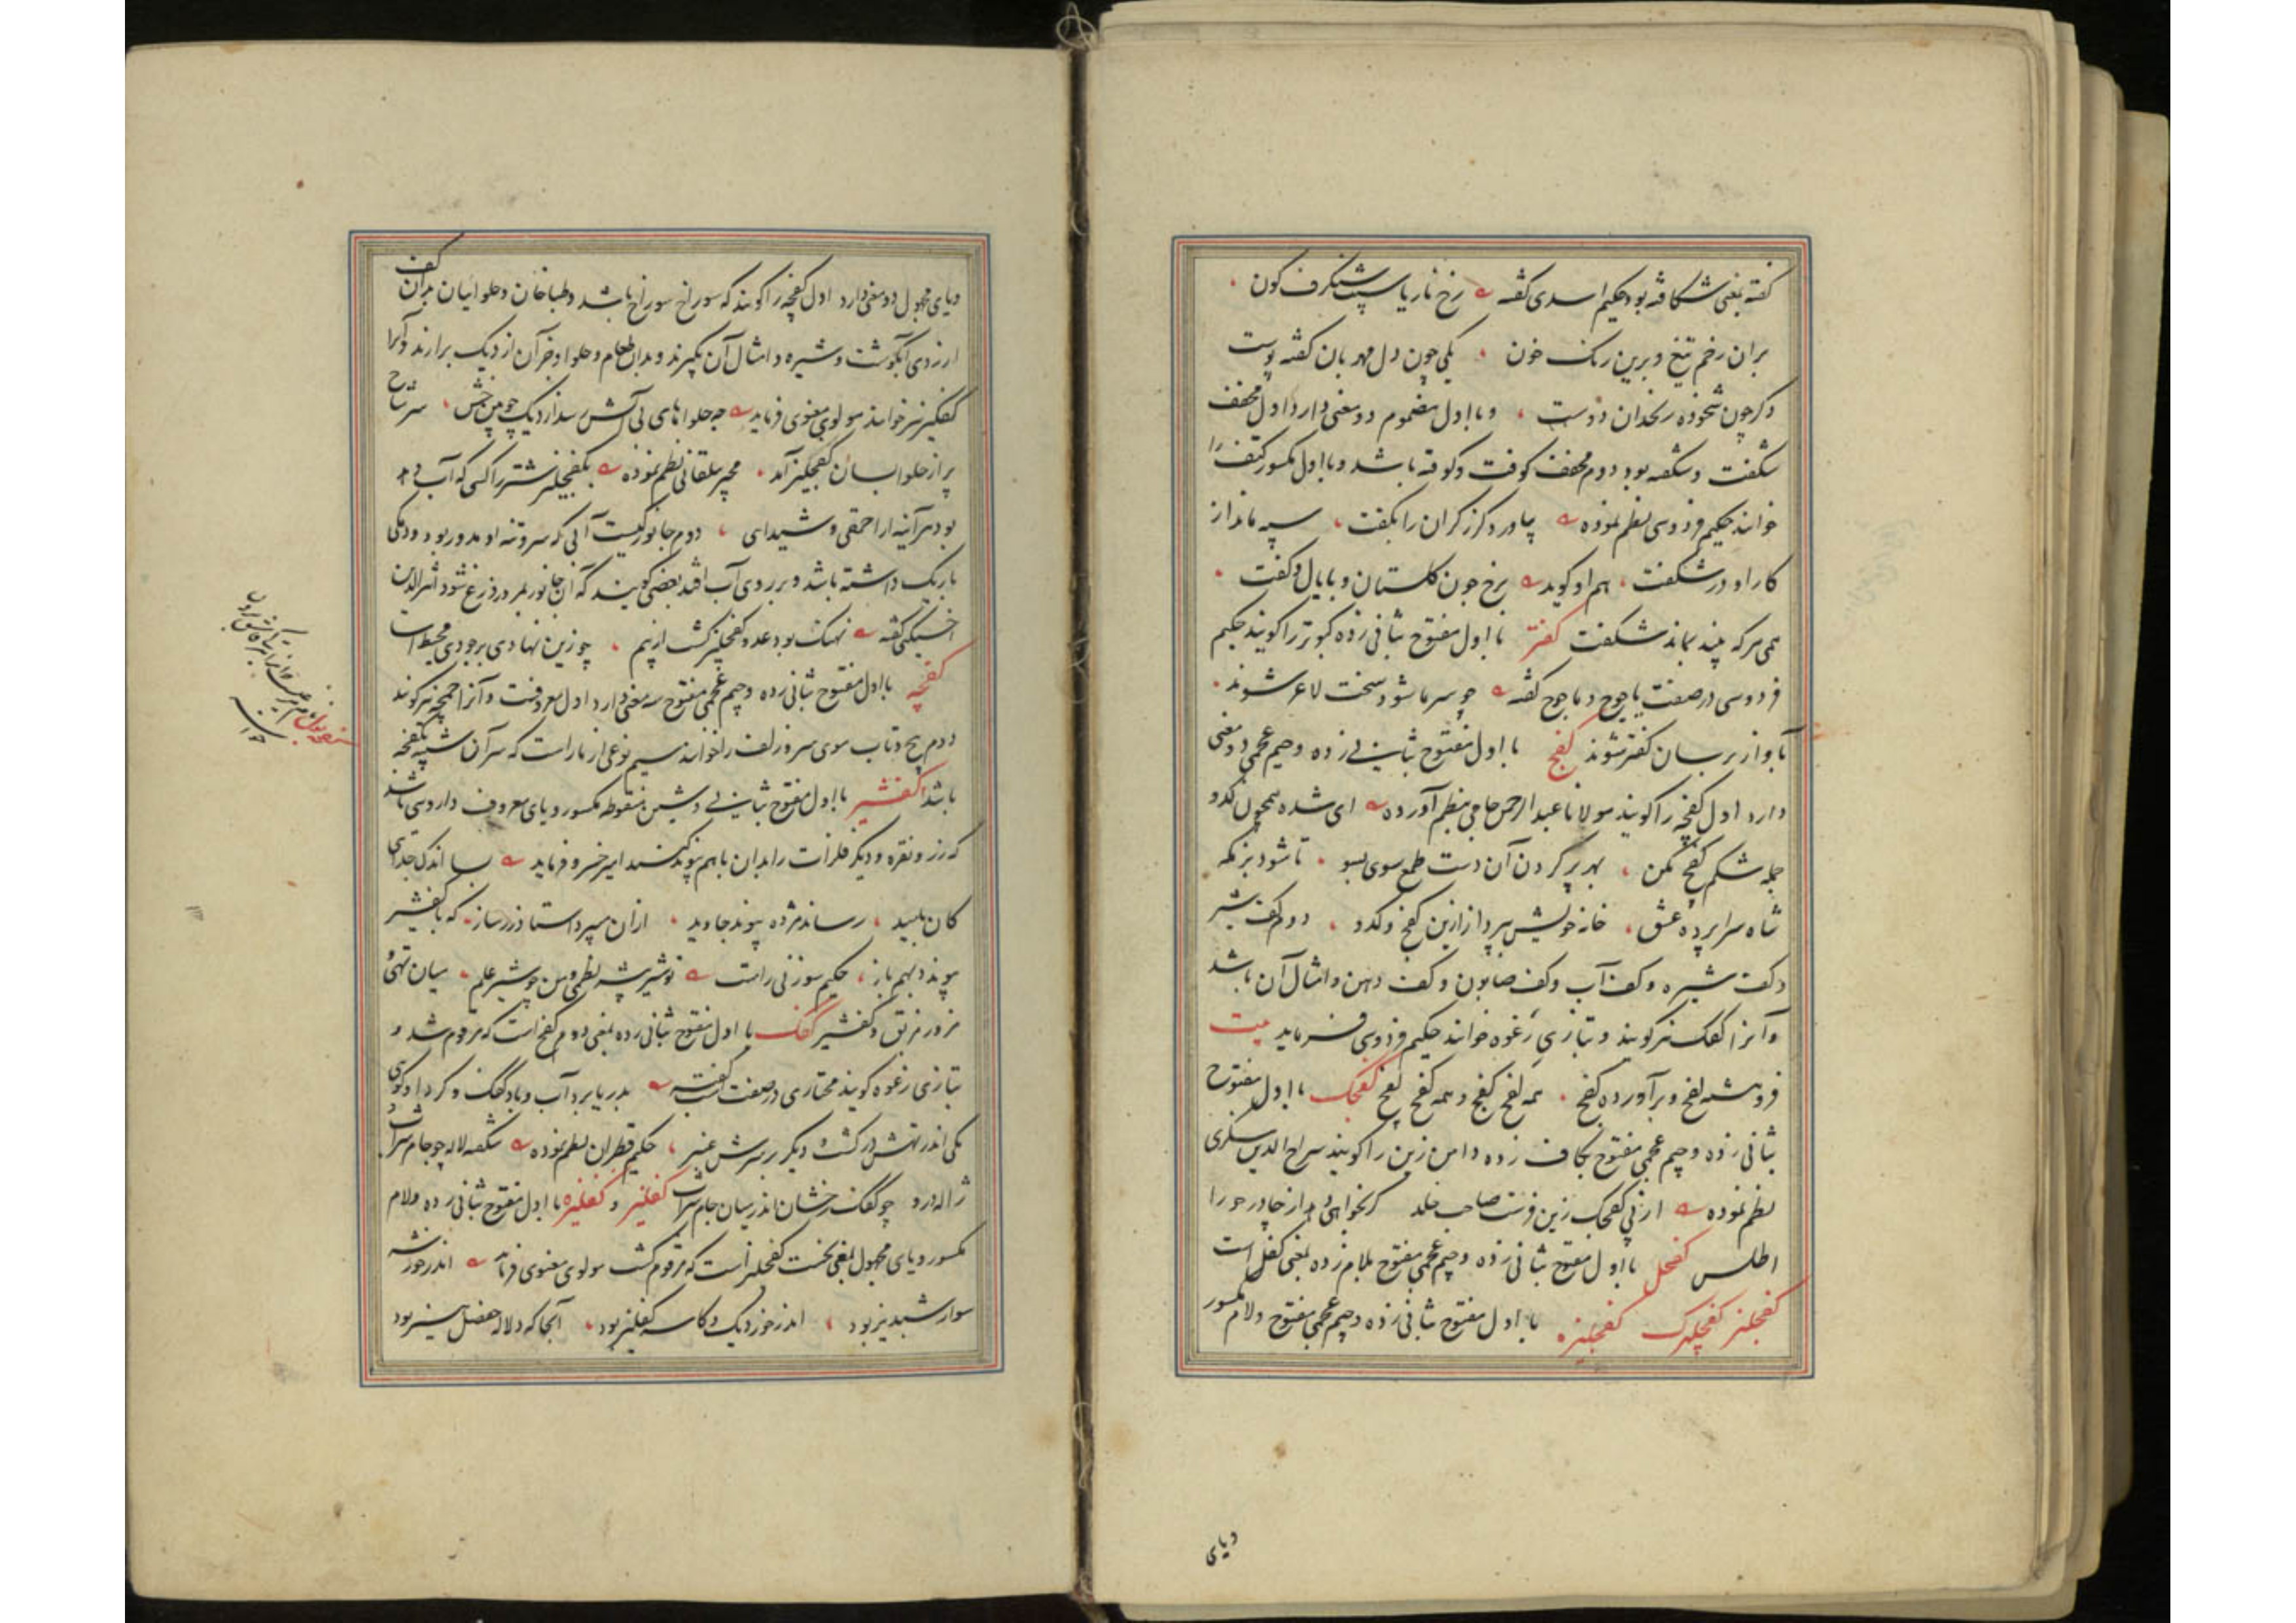 کفته بمعنی شکافته بود حکیم اسدی گفته رخ نار با سیب شنگرف گون
بران زخم تیغ و برین رنک خون یکی چون دل مهربان کفته پوست
دکر چون شخوذه زنخدان دوست و با اول مضموم دو معنی دارد اول مخفف
شکفت و شکفته بود دوم مخفف کوفت و کوفته باشد و با اول مکسور کتف را
خوانند حکیم فردوسی نظم نموده بیاورد گرز گران را بکفت سپه ماند از
کار او در شکفت هم او کوید برخ چون کلستان و با یال و کفت
همی هرکه بیند بماند شکفت کفتر با اول مفتوح بثانی زده کبوتر را کویند حکیم
فردوسی در صفت یاجوج و ماجوج گفته چو سرما شود سخت لاغر شوند
بآواز برسان کفتر شوند کفچ با اول مفتوح بثانی زده و جیم عجمی دو معنی
دارد اول کفچه را کویند مولانا عبدالرحمن جامی بنظم آورده ای شده همچون کدو
جمله شکم کفچ مکن بهر پر کردن آن دست طمع سوی بسو تا شود بزمکه
شاه سراپرده عشق خانه خویش بپرداز ازین کفچ و کدو دوم کف شیر
و کف شیره و کف آب و کف صابون و کف دهن و امثال آن باشد
و آنرا کفک نیز کویند و بتازی رغوه خوانند حکیم فردوسی فرماید بیت
فروهشته لفچ و برآورده کفچ همه لفچ کفچ و همه کفچ لفچ کفچک با اول مفتوح
بثانی زده و جیم عجمی مفتوح بکاف زده دامن زین را کویند سراج الدین سکزی
نظم نموده از پی کفچک زین فرست صاحب خلد کر بخواهی از چادر حورا
اطلس کفچل با اول مفتوح بثانی زده و جیم عجمی مفتوح بلام زده بمعنی کفل است
کفچلیز کفچلیزک کفچلیزه با اول مفتوح بثانی زده و جیم عجمی مفتوح و لام مکسور
ویای
ویای مجهول دو معنی دارد اول کفچه را کویند که سوراخ سوراخ باشد و طباخان و حلوائیان بدان کف
از روی آبگوشت و شیره و امثال آن بگیرند و بدان طعام و حلوا و جز آن از دیک برارند و آنرا
کفگیر نیز خوانند مولوی معنوی فرماید چه حلواهای بی آتش رسد از دیک چوبین خوش سر شاخ
پر از حلوا بسان کفچلیز آمد مجیر بیلقانی نظم نموده بکفچلیز شتر را کسی که آب دهد
بود هرآینه از احمقی و شیدائی دوم جانوریست آبی که سر و تنه او مدور بود و دمکی
باریک داشته باشد و بر روی آب افتد بعضی کویند که آن جانور بمرور وزغ شود اثیرالدین
اخسیکتی گفته نهنک بود عدو کفچلیز کشت از بیم چو زین نهادی بر جودی محیط است
کفچه با اول مفتوح بثانی زده و جیم عجمی مفتوح سه معنی دارد اول معروفست و آنرا چمچه نیز کویند
دوم پیچ و تاب سوی سر زلف را خوانند سیم نوعی از مار است که سر آن شبیه بکفچه
باشد کفشیر با اول مفتوح بثانی زده و شین منقوطه مکسور و یای معروف داروی باشد
که زر و نقره و دیگر فلزات را بدان باهم پیوند کنند امیر خسرو فرماید بسا اندک جدائی
کان پلید رساند مژده پیوند جاوید ازان سپرد استاد زر ساز که با کفشیر
پیوندد بهم باز حکیم سوزنی راست تو شیر بیشه نظمی و من چو شیر علم میان تهی و
مزور مزیق و کفشیر کفک با اول مفتوح بثانی زده بمعنی دوم کفچ است که مرقوم شد و
بتازی رغوه کویند مختاری در صفت اسب گفته بدریا برد آب و باد کفک و کرد او کوئی
یکی اندر تهش در کشت و دیگر بر سرش عنبر حکیم قطران نظم نموده شکفته لاله چو جام شراب و
ژاله درو چو کفک رخشان اندر میان جام شراب کفلیز و کفلیزه با اول مفتوح بثانی زده و لام
مکسور و یای مجهول بمعنی نخست کفچلیز است که مرقوم گشت مولوی معنوی فرماید اندر خور شه
سوار شبدیز بود اندر خور دیک و کاسه کفلیز بود آنجا که دلاله